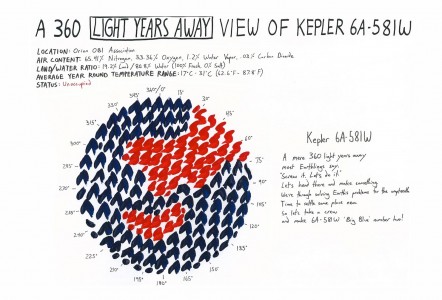 A 360 LIGHT YEARS AWAY VIEW OF KEPLER 6A-581W
LOCATION: Orion OB1 Association
AIR CONTENT: 65.41% Nitrogen, 33.36% Oxygen, 1.2% Water Vapor, .03% Carbon Dioxide
LAND/WATER RATIO: 19.2% Land/80.8% Water (100% Fresh, 0% Salt)
AVERAGE YEAR ROUND TEMPERATURE RANGE: 17°C - 31°C (62.6°F - 87.8°F)
STATUS: Unoccupied
360°/0
15°
30°
45°
60°
75°
90°
105°
120°
135°
150°
165°
180°
195°
210°
225°
240°
255°
270°
285°
300°
315°
Kepler 6A-581W
A mere 360 light years away
meet Earthlings say,
'Screw it. Let's do it'
Let's head there and make something
We're through solving Earth's problems for the umpteenth
Time to settle some place new
So let's take a crew
and make 6A-581W 'Big Blue' number two!